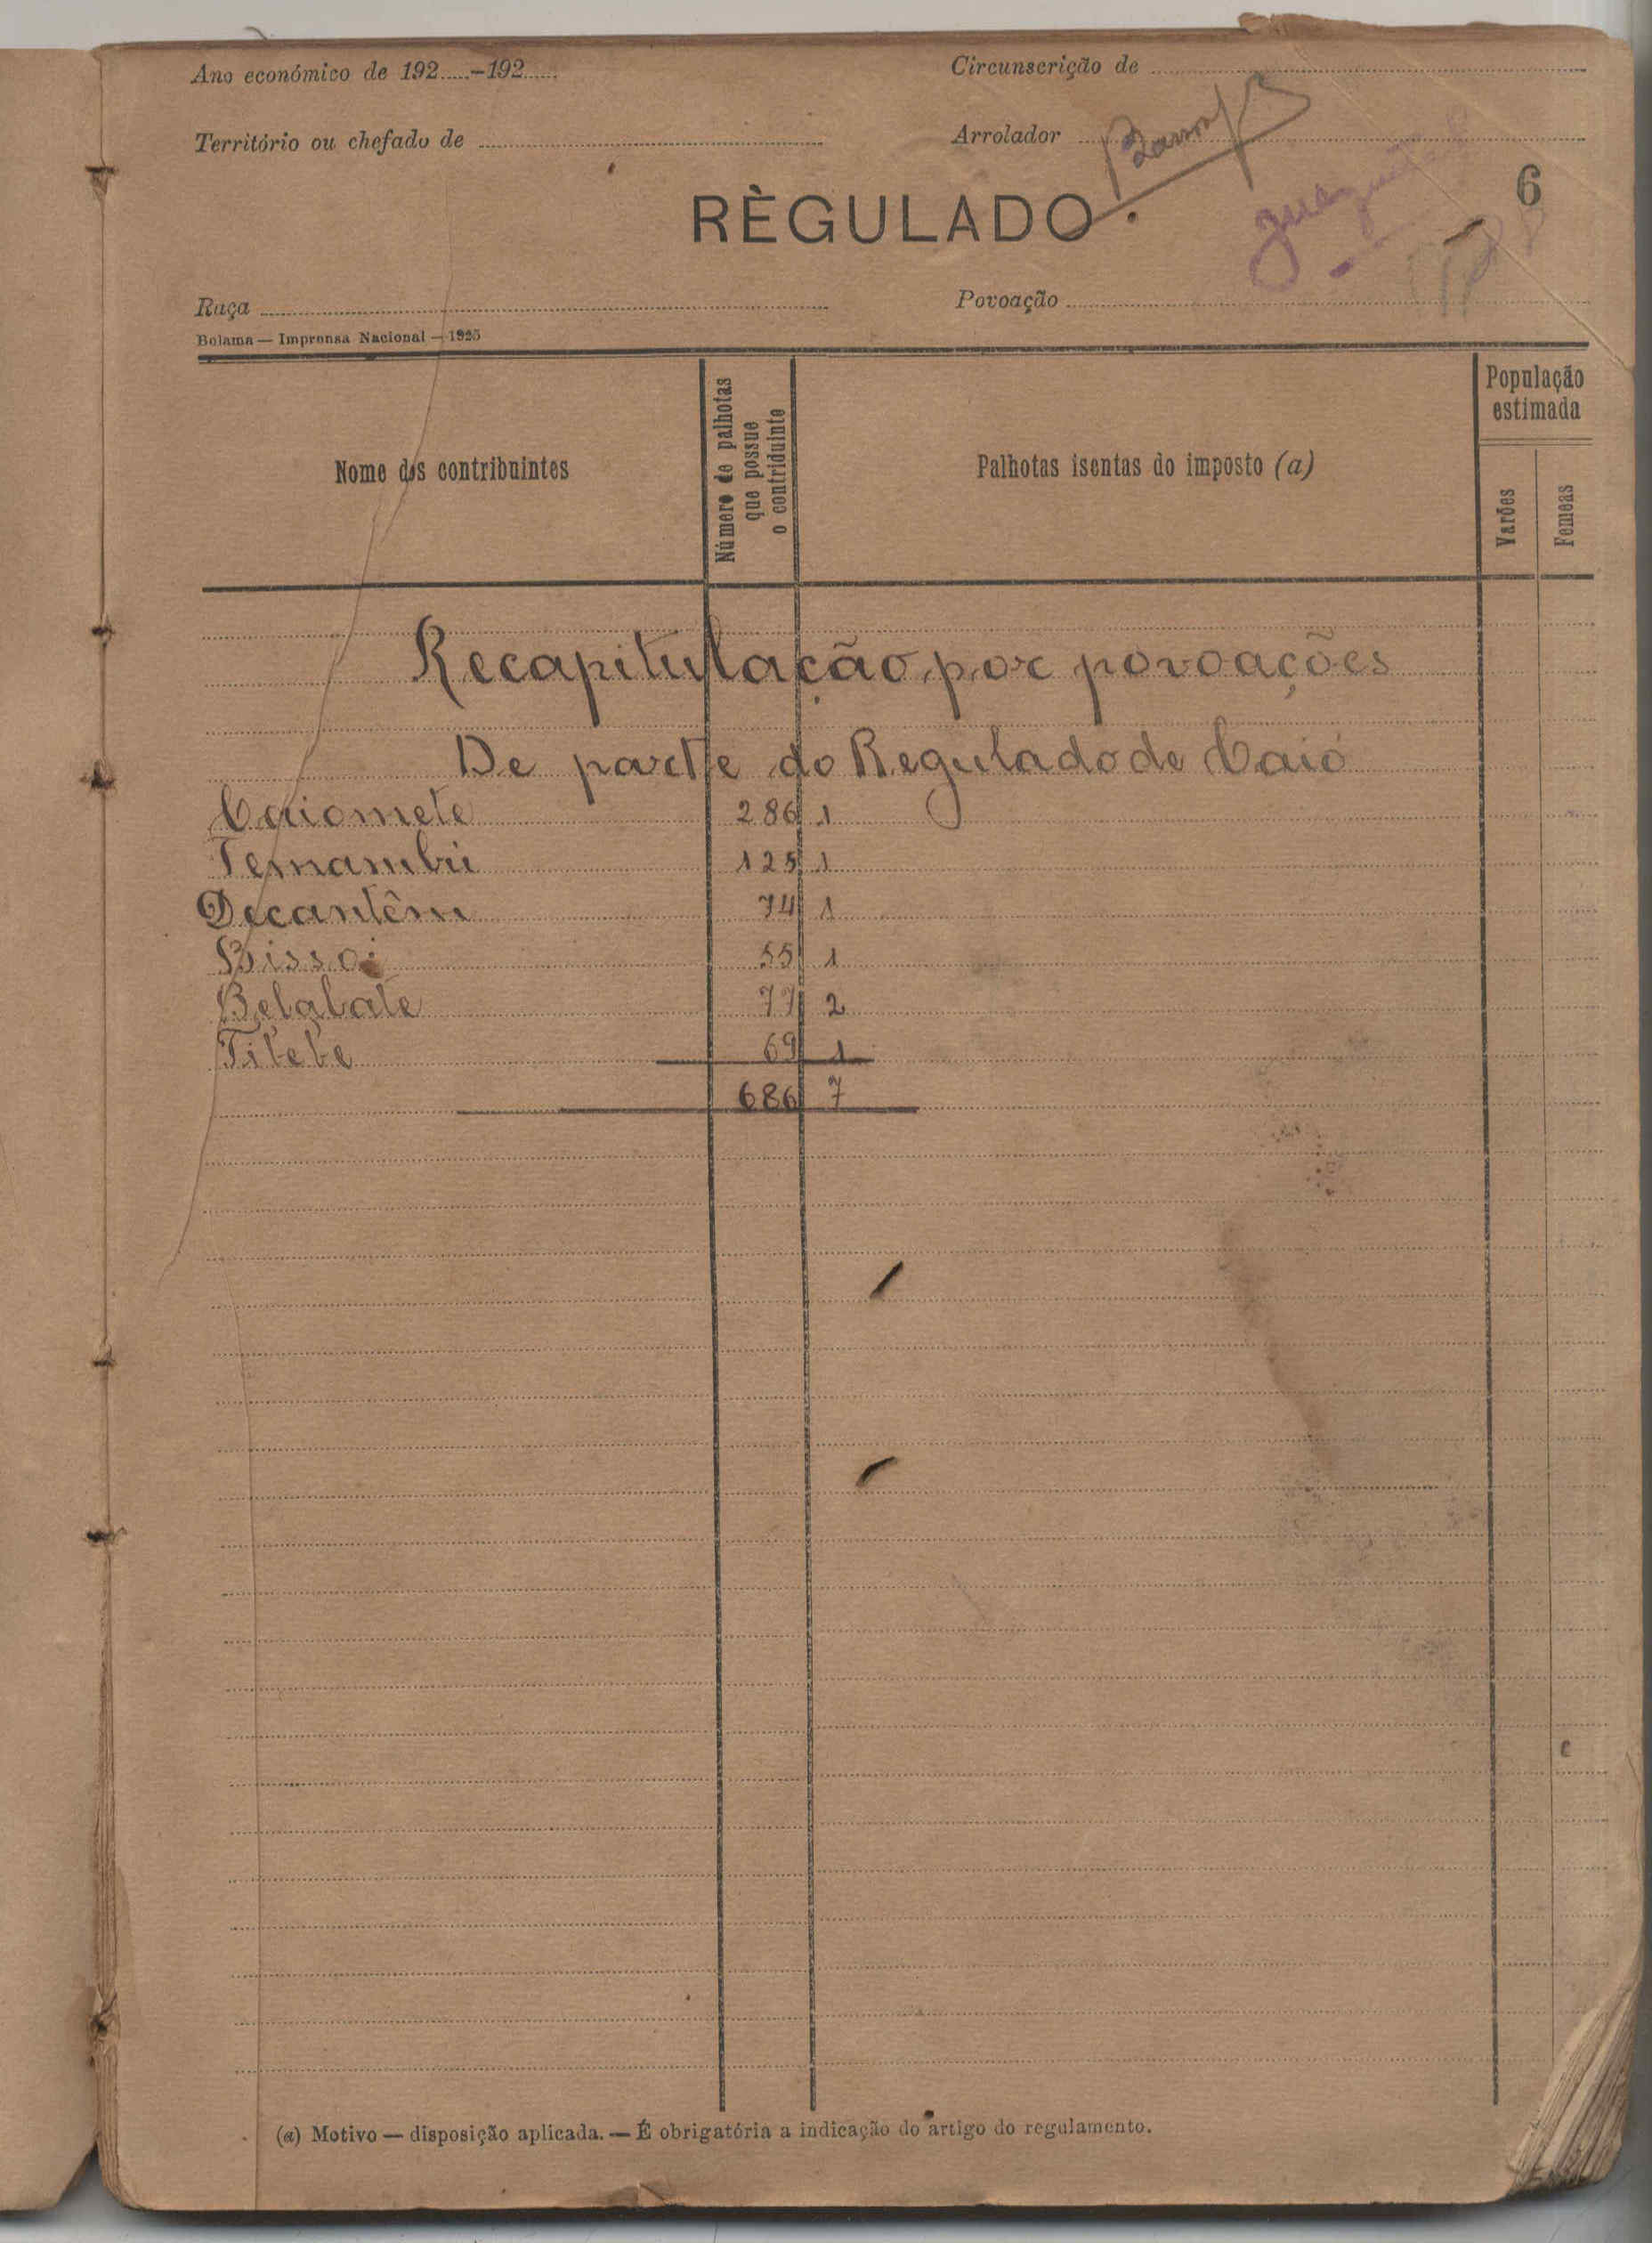 Ano económico de 192.....-192.....
Circunscrição de
Território ou chefado de
Arrolador
RÈGULADO
6
Raça
Povoação
Bolama — Imprensa Nacional — 1925
Nome dos contribuintes
Número de palhotas
que possue
o contriduinte
Palhotas isentas do imposto (a)
População
estimada
Varões
Femeas
Recapitulação por povoações
De parte do Regulado de Caió
Caiomete 286 1
Temambú 125 1
Decantêm 74 1
Bissoi 55 1
Belabate 77 2
Tibebe 69 1
686 7
(a) Motivo — disposição aplicada. — É obrigatória a indicação do artigo do regulamento.